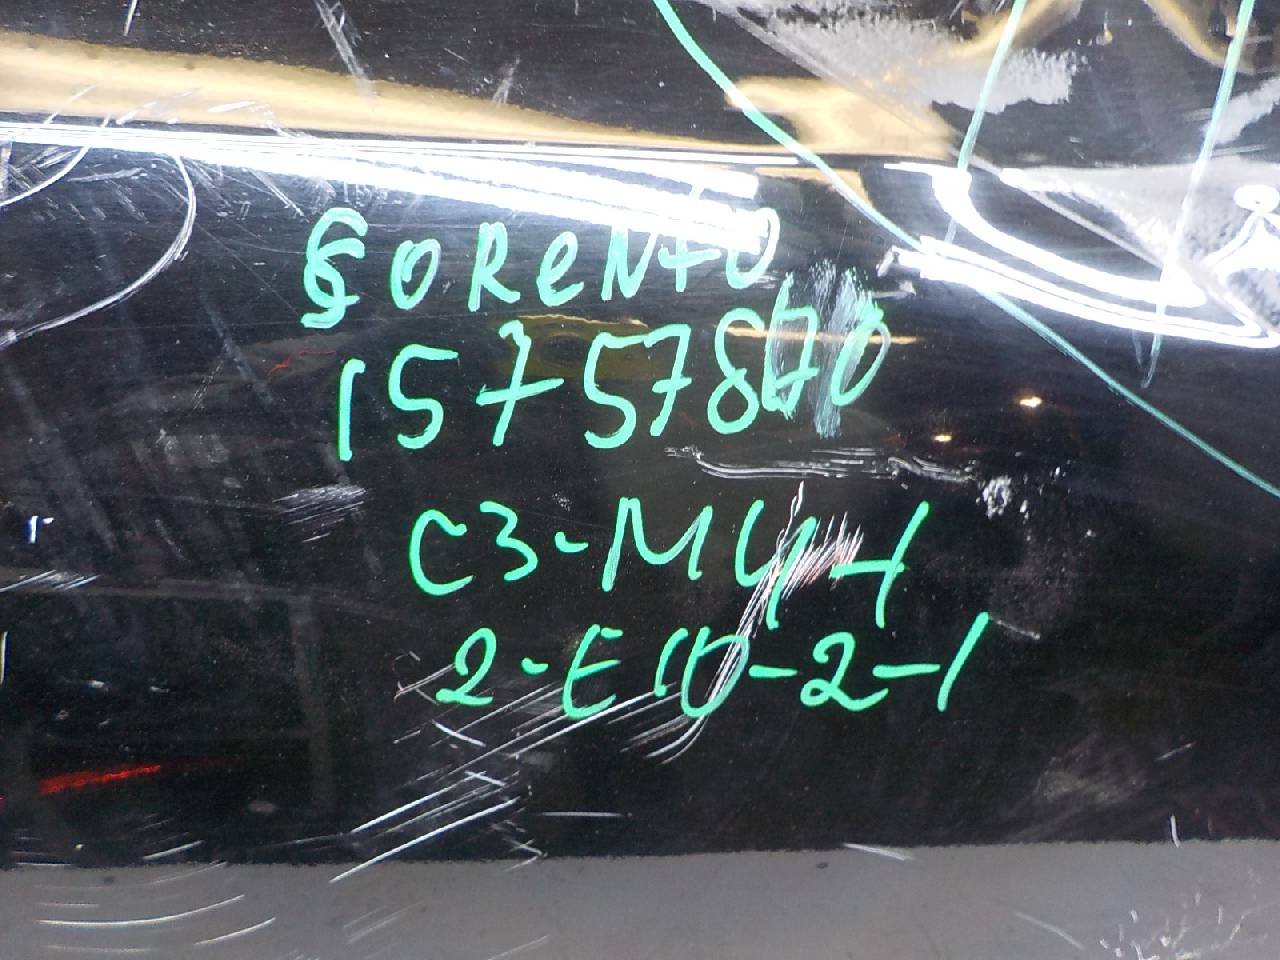 SORENTO
15757870
C3-M4-1
2-E10-2-1